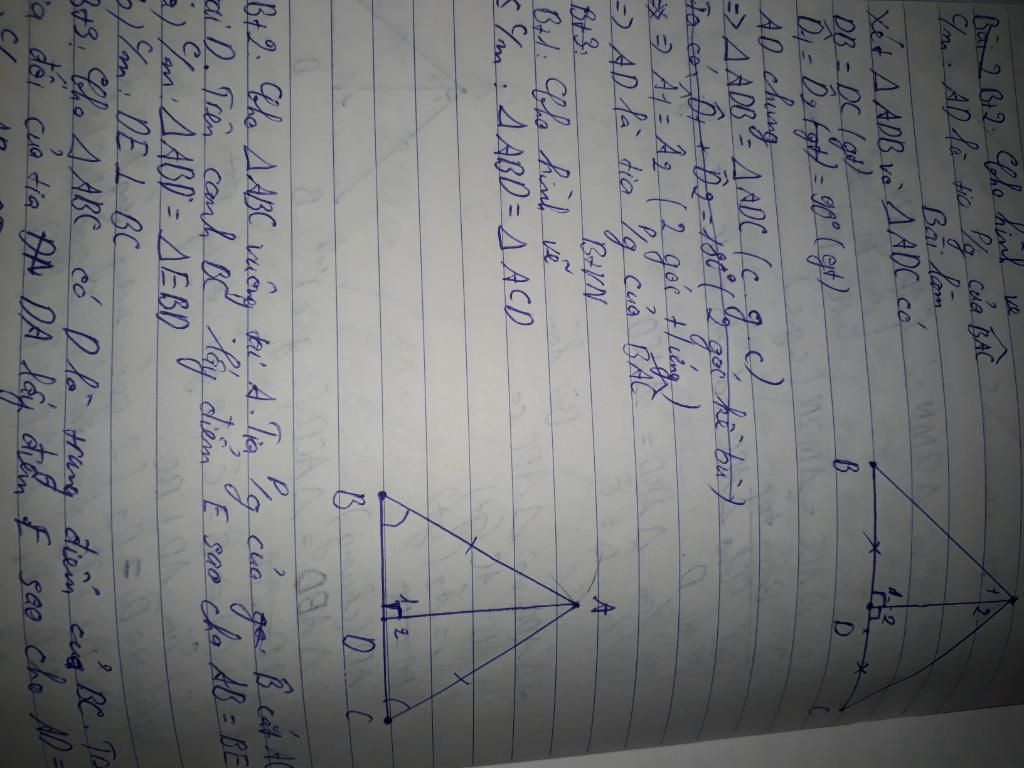 Bt 2: Cho hình vẽ
C/m. AD là tia p/g của BÂC
Bài làm
Xét Δ ADB và Δ ADC có
DB = DC (gt)
D̂1 = D̂2 (gt) = 90° (gt)
AD chung
=> Δ ADB = Δ ADC (c.g.c)
Ta có: D̂1 + D̂2 = 180° (2 góc kề bù)
=> Â1 = Â2 (2 góc t/ứng)
=> AD là tia p/g của BÂC
A
1 2
1 2
B D C
Bt+3:
BtVN
Bt1: Cho hình vẽ
C/m: Δ ABD = Δ ACD
A
1 2
B D C
Bt2: Cho Δ ABC vuông tại A. Tia p/g của B̂ cắt AC
tại D. Trên cạnh BC lấy điểm E sao cho AB = BE
a) C/m: Δ ABD = Δ EBD
b) C/m: DE ⊥ BC
Bt3: Cho Δ ABC có D là trung điểm của BC. Trên
tia đối của tia DA lấy điểm E sao cho AD =